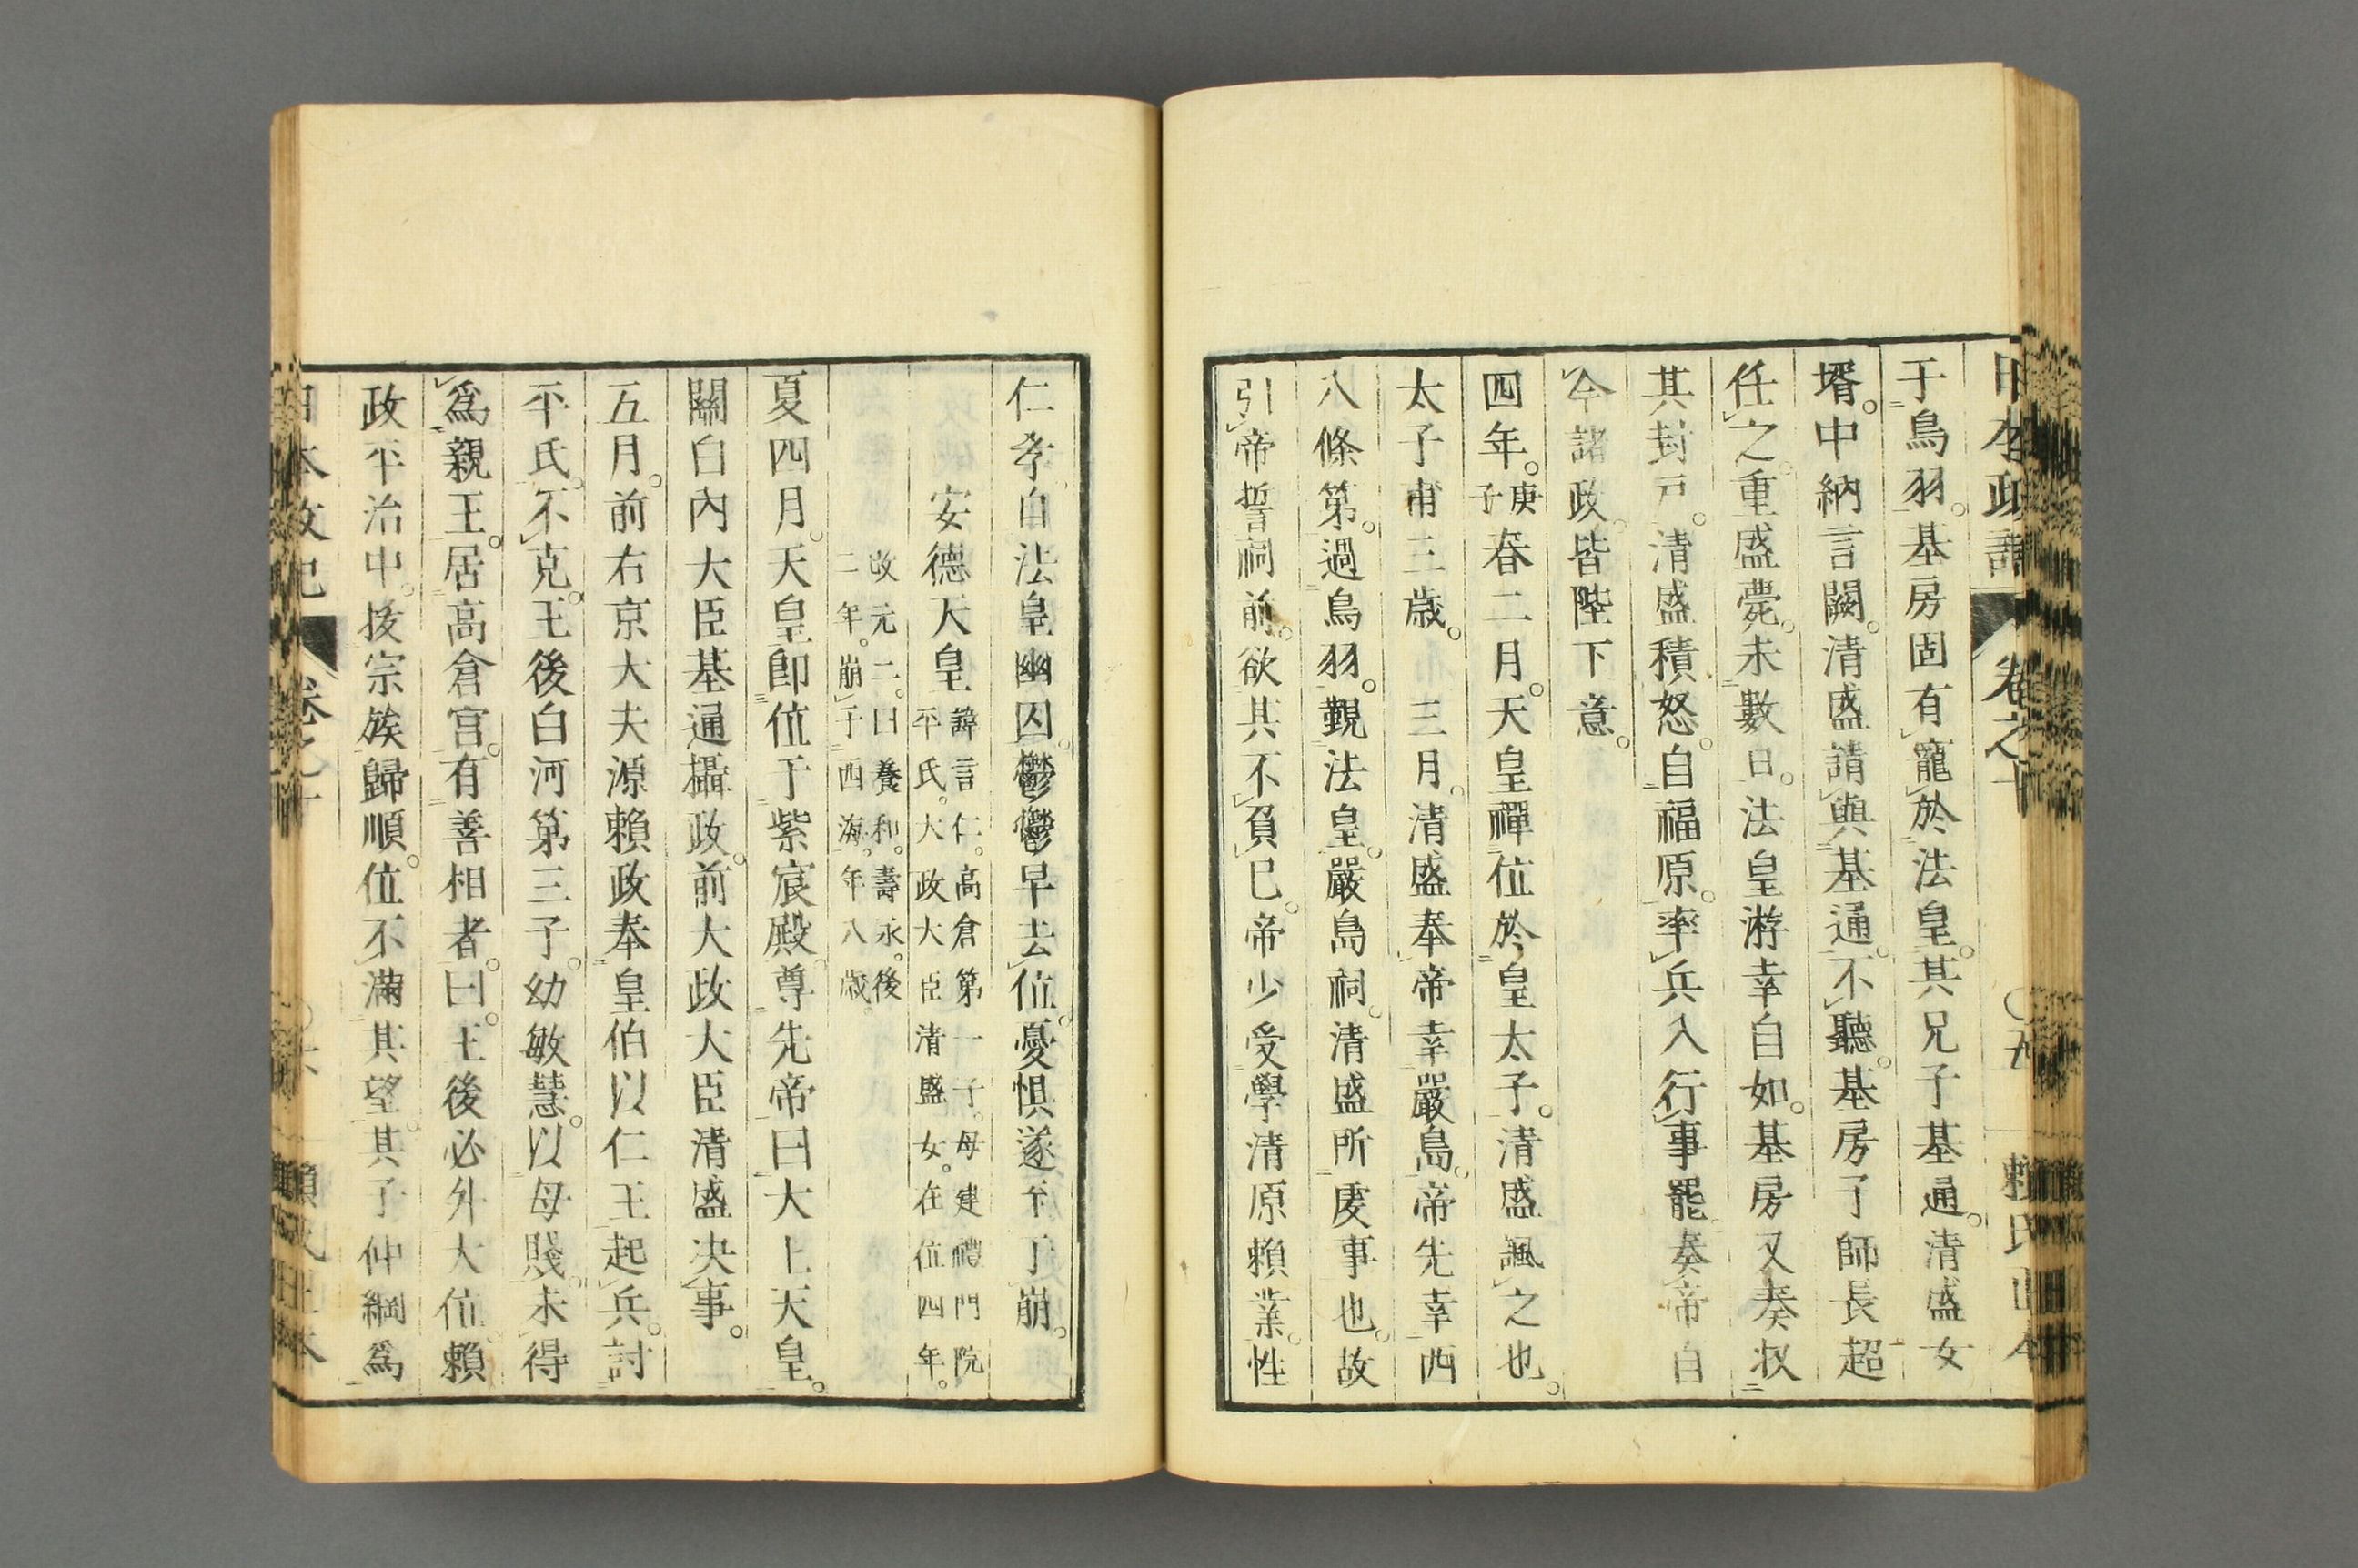 于鳥羽。基房固有寵於法皇。其兄子基通。清盛女
壻。中納言闕。清盛請與基通。不聽。基房子師長超
任之。重盛薨。未數日。法皇游幸自如。基房又奏収
其封戸。清盛積怒。自福原。率兵入行事罷。奏帝自
今諸政。皆陛下意。
四年。庚子春二月。天皇禪位於皇太子。清盛諷之也。
太子甫三歳。三月。清盛奉帝幸嚴島。帝先幸西
八條第。過鳥羽。覲法皇。嚴島祠。清盛所虔事也。故
引帝誓祠前。欲其不負已。帝少受學清原頼業。性
仁孝自法皇幽囚。鬱鬱早去位。憂惧遂至于崩。
安德天皇 諱言仁。高倉第一子。母建禮門院
平氏。大政大臣清盛女。在位四年。
改元二。曰養和。壽永。後
二年。崩于西海。年八歳。
夏四月。天皇卽位于紫宸殿。尊先帝曰大上天皇。
關白內大臣基通攝政。前大政大臣清盛决事。
五月。前右京大夫源賴政奉皇伯以仁王起兵。討
平氏。不克。王後白河第三子。幼敏慧。以母賤。未得
爲親王。居高倉宮。有善相者。曰。王後必外大位。賴
政平治中。拔宗族歸順。位不滿其望。其子仲綱爲
卷之十